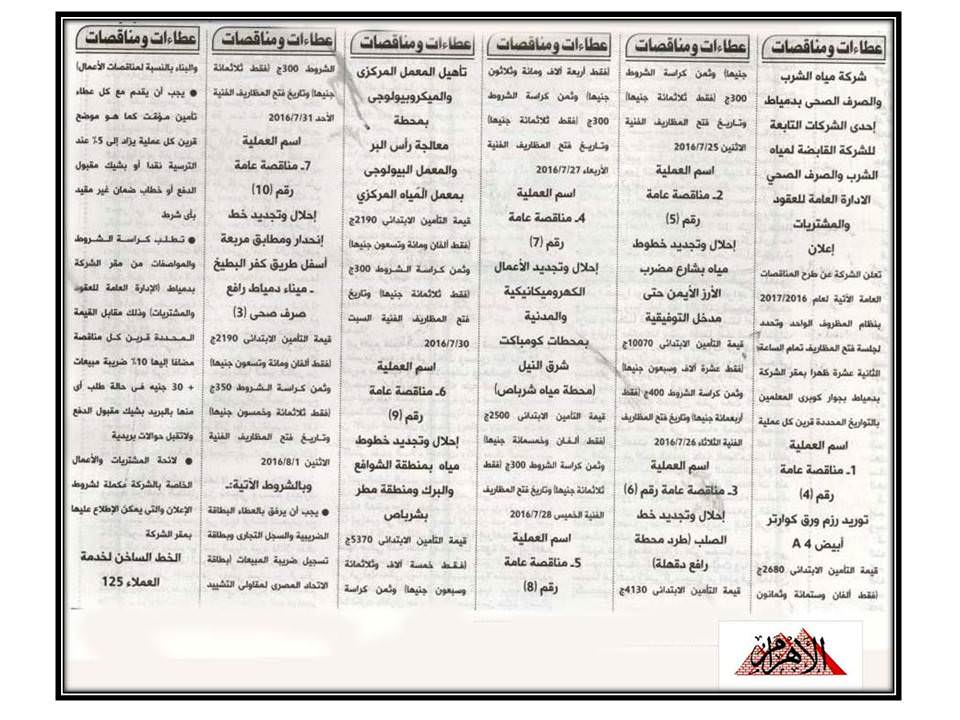 عطاءات ومناقصات
شركة مياه الشرب
والصرف الصحى بدمياط
إحدى الشركات التابعة
للشركة القابضة لمياه
الشرب والصرف الصحي
الادارة العامة للعقود
والمشتريات
إعلان
تعلن الشركة عن طرح المناقصات
العامة الأتية لعام 2017/2016
بنظام المظروف الواحد وتحدد
لجلسة فتح المظاريف تمام الساعة
الثانية عشرة ظهرا بمقر الشركة
بدمياط بجوار كوبرى المعلمين
بالتواريخ المحددة قرين كل عملية
اسم العملية
1ـ مناقصة عامة
رقم (4)
توريد رزم ورق كوارتر
أبيض A 4
قيمة التأمين الابتدائى 2680ج
(فقط ألفان وستمائة وثمانون
عطاءات ومناقصات
جنيها) وثمن كراسة الشروط
300ج (فقط ثلاثمائة جنيها)
وتاريخ فتح المظاريف الفنية
الاثنين 2016/7/25
اسم العملية
2ـ مناقصة عامة
رقم (5)
إحلال وتجديد خطوط
مياه بشارع مضرب
الأرز الأيمن حتى
مدخل التوفيقية
قيمة التأمين الابتدائى 10070ج
(فقط عشرة آلاف وسبعون جنيها)
وثمن كراسة الشروط 400ج (فقط
أربعمائة جنيها) وتاريخ فتح المظاريف
الفنية الثلاثاء 2016/7/26
اسم العملية
3ـ مناقصة عامة رقم (6)
إحلال وتجديد خط
الصلب (طرد محطة
رافع دقهلة)
قيمة التأمين الابتدائى 4130ج
عطاءات ومناقصات
(فقط أربعة ألاف ومائة وثلاثون
جنيها) وثمن كراسة الشروط
300ج (فقط ثلاثمائة جنيها)
وتاريخ فتح المظاريف الفنية
الأربعاء 2016/7/27
اسم العملية
4ـ مناقصة عامة
رقم (7)
إحلال وتجديد الأعمال
الكهروميكانيكية
والمدنية
بمحطات كومباكت
شرق النيل
(محطة مياه شرباص)
قيمة التأمين الابتدائى 2500ج
(فقط ألفان وخمسمائة جنيها)
وثمن كراسة الشروط 300ج (فقط
ثلاثمائة جنيها) وتاريخ فتح المظاريف
الفنية الخميس 2016/7/28
اسم العملية
5ـ مناقصة عامة
رقم (8)
عطاءات ومناقصات
تأهيل المعمل المركزى
والميكروبيولوجى
بمحطة
معالجة رأس البر
والمعمل البيولوجى
بمعمل المياه المركزي
قيمة التأمين الابتدائى 2190ج
(فقط ألفان ومائة وتسعون جنيها)
وثمن كراسة الشروط 300ج
(فقط ثلاثمائة جنيها) وتاريخ
فتح المظاريف الفنية السبت
2016/7/30
اسم العملية
6ـ مناقصة عامة
رقم (9)
إحلال وتجديد خطوط
مياه بمنطقة الشوافع
والبرك ومنطقة مطر
بشرباص
قيمة التأمين الابتدائى 5370ج
(فقط خمسة الاف وثلاثمائة
وسبعون جنيها) وثمن كراسة
عطاءات ومناقصات
الشروط 300ج (فقط ثلاثمائة
جنيها) وتاريخ فتح المظاريف الفنية
الأحد 2016/7/31
اسم العملية
7ـ مناقصة عامة
رقم (10)
إحلال وتجديد خط
إنحدار ومطابق مربعة
أسفل طريق كفر البطيخ
ـ ميناء دمياط رافع
صرف صحى (3)
قيمة التأمين الابتدائى 2190ج
(فقط ألفان ومائة وتسعون جنيها)
وثمن كراسة الشروط 350ج
(فقط ثلاثمائة وخمسون جنيها)
وتاريخ فتح المظاريف الفنية
الاثنين 2016/8/1
وبالشروط الأتية:ـ
● يجب أن يرفق بالعطاء البطاقة
الضريبية والسجل التجارى وبطاقة
تسجيل ضريبة المبيعات (بطاقة
الاتحاد المصرى لمقاولى التشييد
عطاءات ومناقصات
والبناء بالنسبة لمناقصات الأعمال)
● يجب أن يقدم مع كل عطاء
تأمين مؤقت كما هو موضح
قرين كل عملية يزاد إلى 5٪ عند
الترسية نقدا أو بشيك مقبول
الدفع أو خطاب ضمان غير مقيد
بأى شرط
● تطلب كراسة الشروط
والمواصفات من مقر الشركة
بدمياط (الإدارة العامة للعقود
والمشتريات) وذلك مقابل القيمة
المحددة قرين كل مناقصة
مضافا إليها 10٪ ضريبة مبيعات
+ 30 جنيه فى حالة طلب أى
منها بالبريد بشيك مقبول الدفع
ولاتقبل حوالات بريدية
● لائحة المشتريات والأعمال
الخاصة بالشركة مكملة لشروط
الإعلان والتى يمكن الإطلاع عليها
بمقر الشركة
الخط الساخن لخدمة
العملاء 125
الأهرام